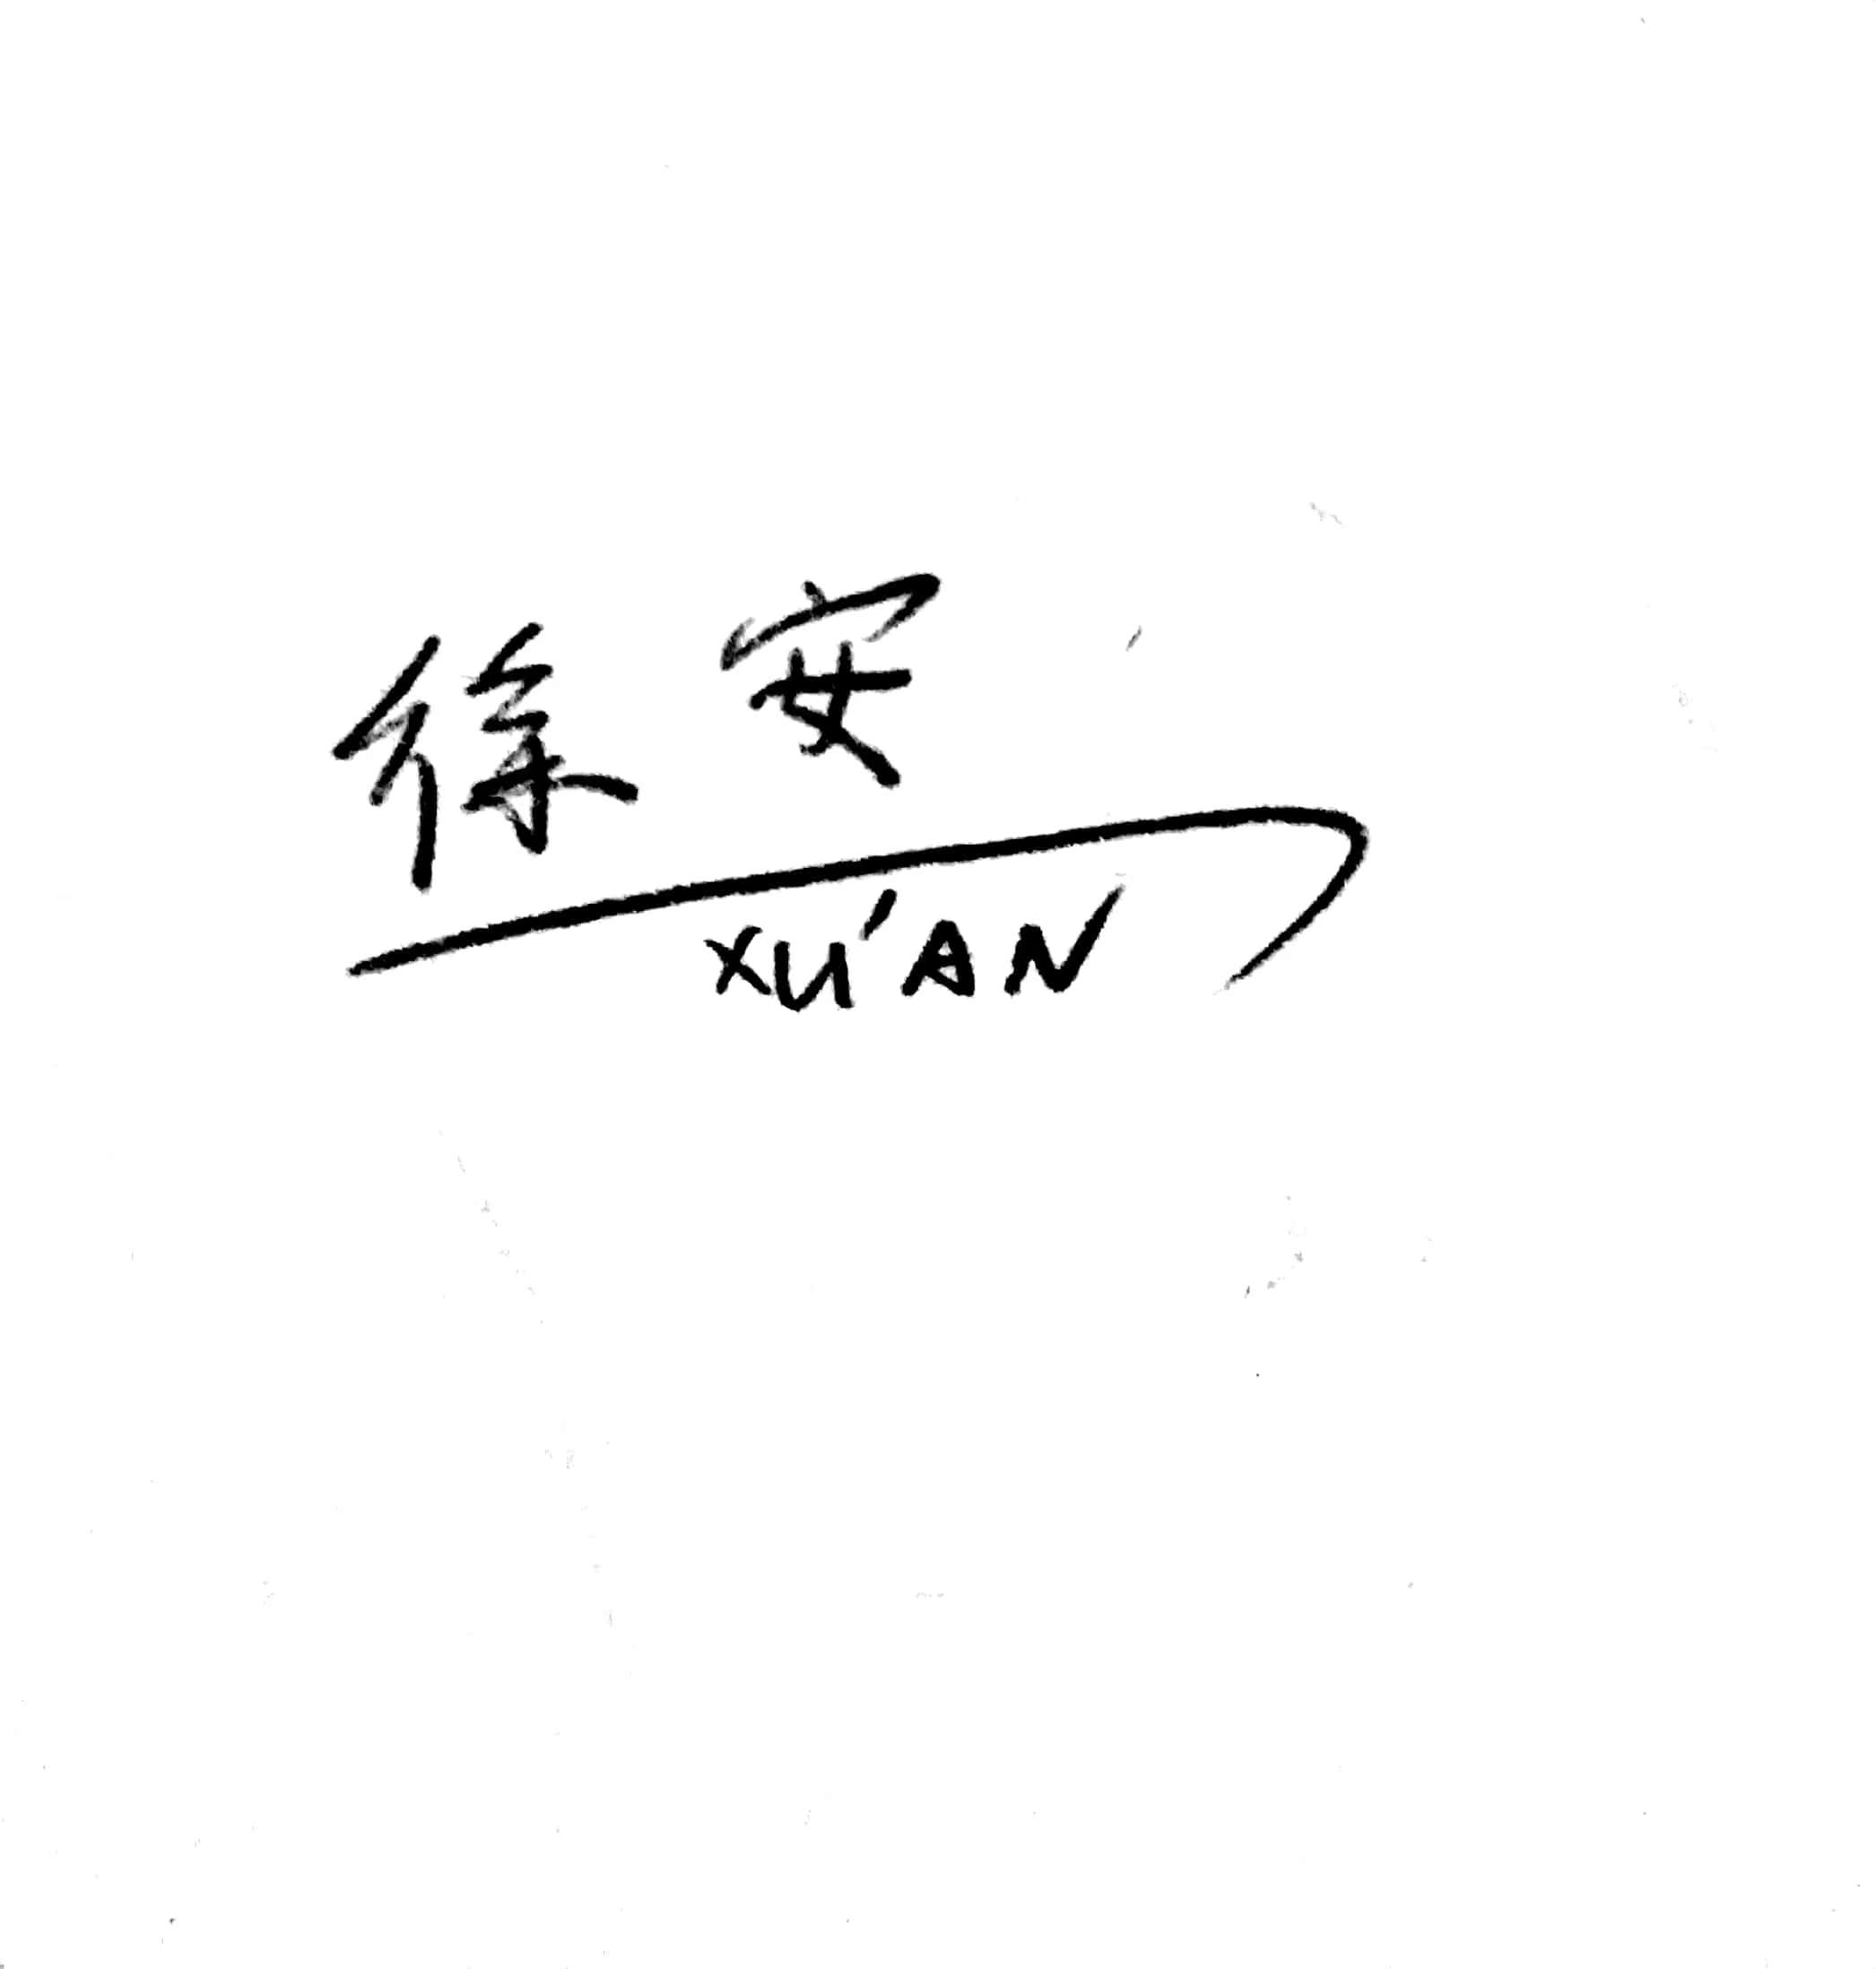 徐安
XU'AN